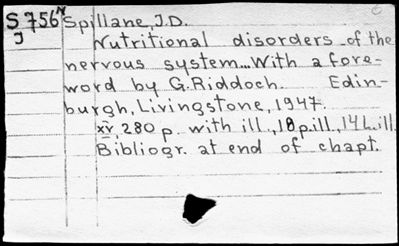 S 756N Spillane, J.D.
J Nutritional disorders of the
nervous system... With a fore-
word by G. Riddoch. Edin-
burgh, Livingstone, 1947.
xv, 280 p. with ill., 18 p. ill., 14 L. ill.
Bibliogr. at end of chapt.